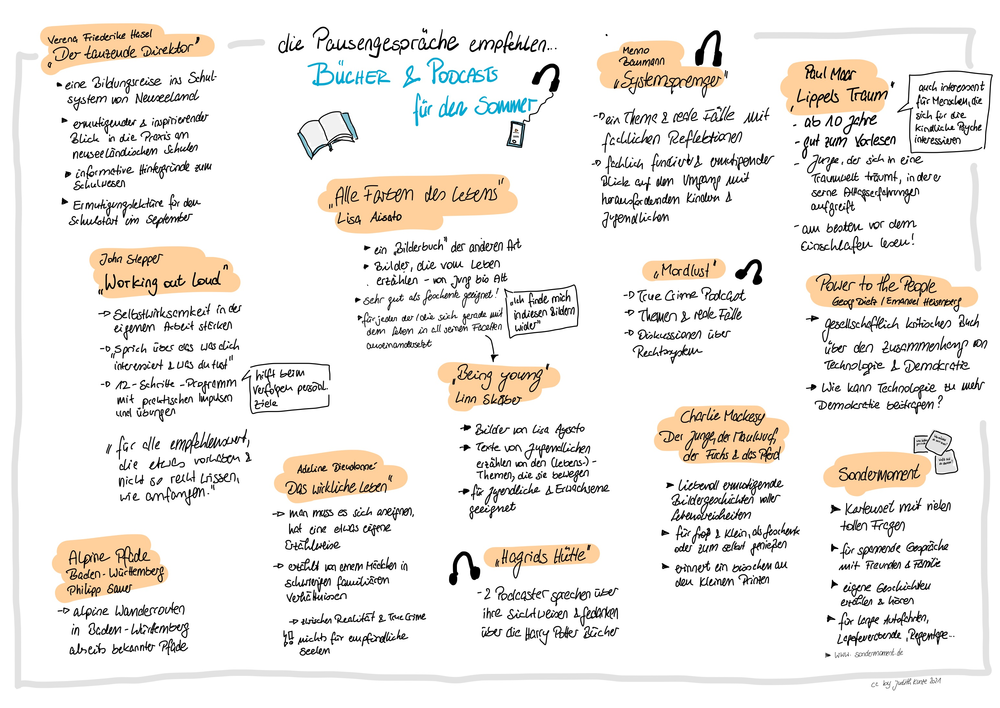 die Pausengespräche empfehlen...
BÜCHER & PODCASTS
für den Sommer
Verena Friederike Hasel
"Der tanzende Direktor"
eine Bildungsreise ins Schul-
system von Neuseeland
ermutigender & inspirierender
Blick in die Praxis an
neuseeländischen Schulen
informative Hintergründe zum
Schulwesen
Ermutigungslektüre für den
Schulstart im September
John Stepper
"Working out Loud"
Selbstwirksamkeit in der
eigenen Arbeit stärken
"Sprich über das was dich
interessiert & was du tust"
12-Schritte-Programm
mit praktischen Impulsen
und Übungen
hilft beim
Verfolgen persönl.
Ziele
"für alle empfehlenswert,
die etwas vorhaben &
nicht so recht wissen,
wie anfangen."
Alpine Pfade
Baden-Württemberg
Philipp Sauer
alpine Wanderrouten
in Baden-Württemberg
abseits bekannter Pfade
Adeline Dieudonné
"Das wirkliche Leben"
man muss es sich aneignen,
hat eine etwas eigene
Erzählweise
erzählt von einem Mädchen in
schwierigen familiären
Verhältnissen
zwischen Realität & True Crime
nichts für empfindliche
Seelen
"Alle Farben des Lebens"
Lisa Aisato
ein "Bilderbuch" der anderen Art
Bilder, die vom Leben
erzählen - von Jung bis Alt
sehr gut als Geschenk geeignet!
für jeden der/die sich gerade mit
dem Leben in all seinen Facetten
auseinandersetzt
"Ich finde mich
in diesen Bildern
wider"
"Being young"
Linn Skåber
Bilder von Lisa Aysato
Texte von Jugendlichen
erzählen von den (Lebens-)-
Themen, die sie bewegen
für Jugendliche & Erwachsene
geeignet
"Hagrids Hütte"
- 2 Podcaster sprechen über
ihre Sichtweisen & Gedanken
über die Harry Potter Bücher
Menno
Baumann
"Systemsprenger"
ein Thema & reale Fälle mit
fachlichen Reflektionen
fachlich fundiert & ermutigender
Blick auf den Umgang mit
herausfordernden Kindern &
Jugendlichen
"Mordlust"
True Crime Podcast
Themen & reale Fälle
Diskussionen über
Rechtssystem
Charlie Mackesy
Der Junge, der Maulwurf,
der Fuchs & das Pferd
Liebevoll ermutigende
Bildergeschichten voller
Lebensweisheiten
für groß & klein, als Geschenk
oder zum selbst genießen
erinnert ein bisschen an
den kleinen Prinzen
Paul Maar
"Lippels Traum"
- ab 10 Jahre
- gut zum Vorlesen
- Junge, der sich in eine
Traumwelt träumt, in der er
seine Alltagserfahrungen
aufgreift
- am besten vor dem
Einschlafen lesen!
auch interessant
für Menschen, die
sich für die
kindliche Psyche
interessieren
Power to the People
Georg Diez / Emanuel Heisenberg
gesellschaftlich kritisches Buch
über den Zusammenhang von
Technologie & Demokratie
Wie kann Technologie zu mehr
Demokratie beitragen?
Sondermoment
Kartenset mit vielen
tollen Fragen
für spannende Gespräche
mit Freunden & Familie
eigene Geschichten
erzählen & hören
für lange Autofahrten,
Lagerfeuerabende, Regentage...
www.sondermoment.de
cc by Judith Kunte 2021